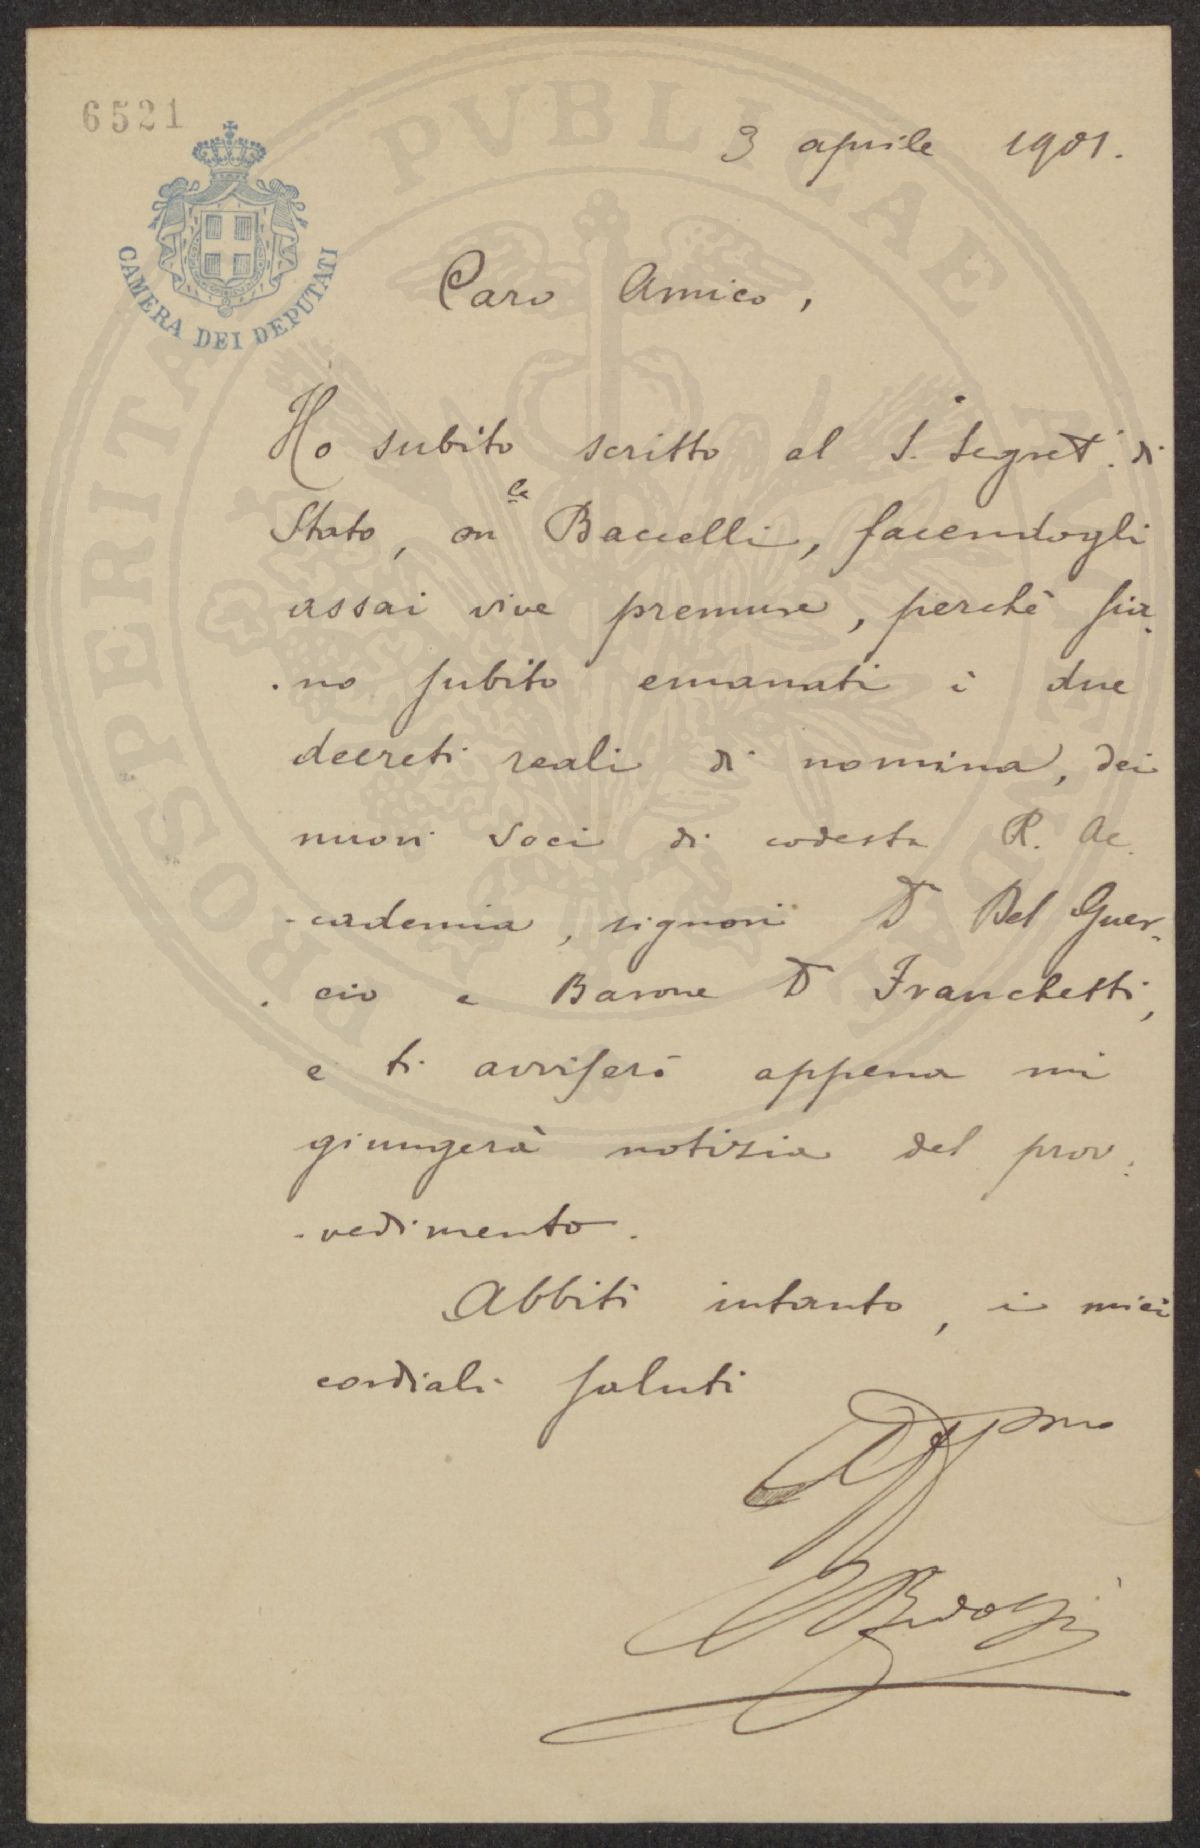 6521
CAMERA DEI DEPUTATI
PROSPERITATI PVBLICAE AVGENDAE
3 aprile 1901.
Caro Amico,
Ho subito scritto al S. Segret. di
Stato, on.le Baccelli, facendogli
assai vive premure, perchè sia-
-no subito emanati i due
decreti reali di nomina, dei
nuovi Soci di codesta R. Ac-
-cademia, signori Dr Del Guer-
-cio e Barone Dr Franchetti,
e ti avviserò appena mi
giungerà notizia del prov-
-vedimento.
Abbiti intanto, i miei
cordiali saluti
Ridolfi